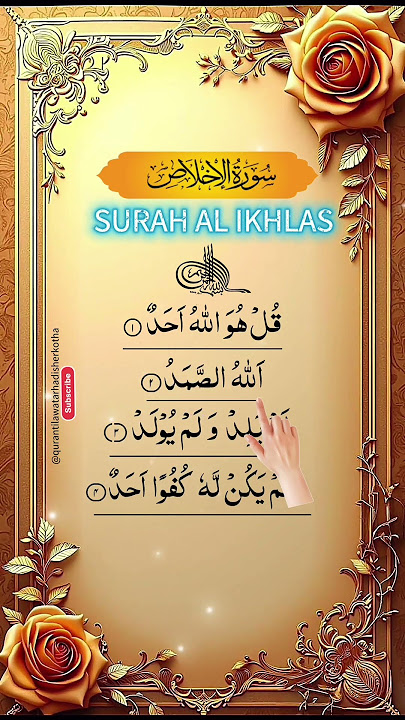 سُورَةُ الْإِخْلَاصِ
SURAH AL IKHLAS
قُلْ هُوَ اللّٰهُ اَحَدٌ ۝١
اَللّٰهُ الصَّمَدُ ۝٢
يَلِدْ وَ لَمْ يُوْلَدْ ۝٣
يَكُنْ لَّهٗ كُفُوًا اَحَدٌ ۝٤
@qurantilawatarhadisherkotha
Subscribe